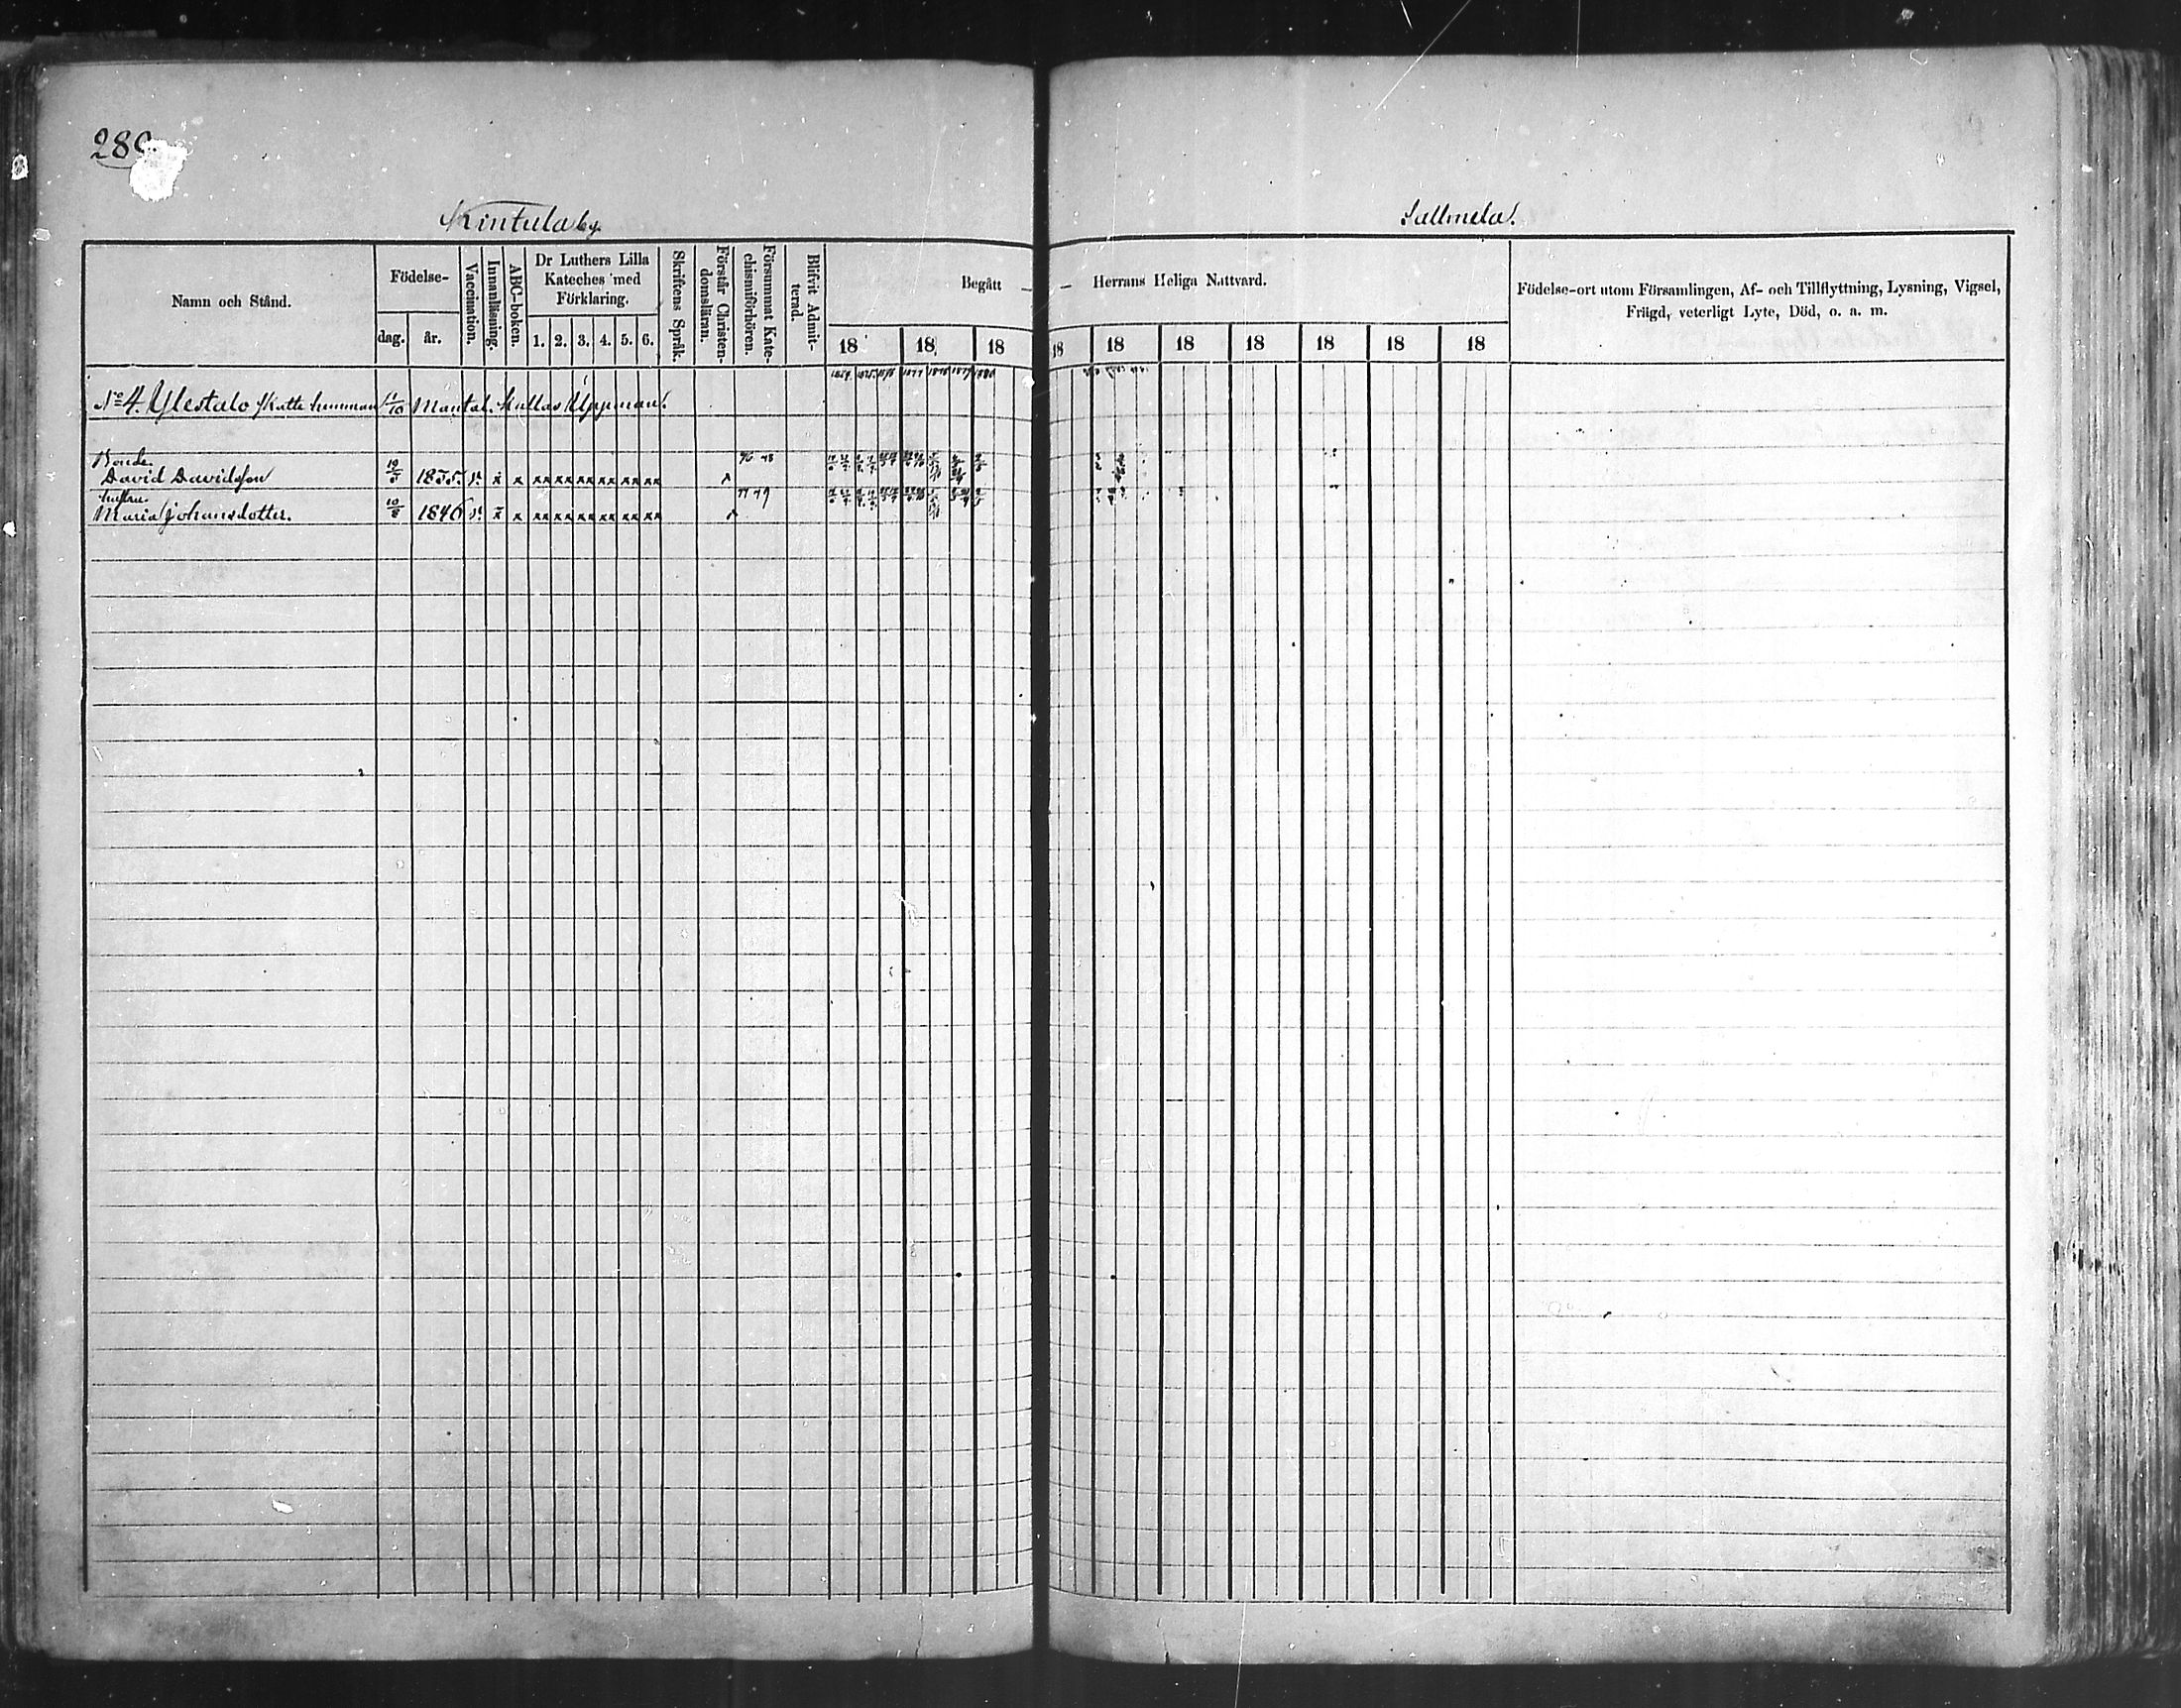 Kintula by.
Sallmela.
Namn och Stånd.
Födelse-
dag.
år.
Vaccination.
Innanläsning.
ABC-boken.
Dr Luthers Lilla
Kateches med
Förklaring.
1. 2. 3. 4. 5. 6.
Skriftens Språk.
Förstår Christen-
domsläran.
Försummat Kate-
chismiförhören.
Blifvit Admit-
terad.
Begått — — Herrans Heliga Nattvard.
18 18 18 18 18 18 18 18 18 18
Födelse-ort utom Församlingen, Af- och Tillflyttning, Lysning, Vigsel,
Frägd, veterligt Lyte, Död, o. a. m.
1877 1878 1879 1880
No 4. Ylestalo Skatte hemman Mantal.
Bonde.
David Davidsson 1835. x x xx xx xx xx xx xx
hustru.
Maria Johansdotter. 1846 x x xx xx xx xx xx xx